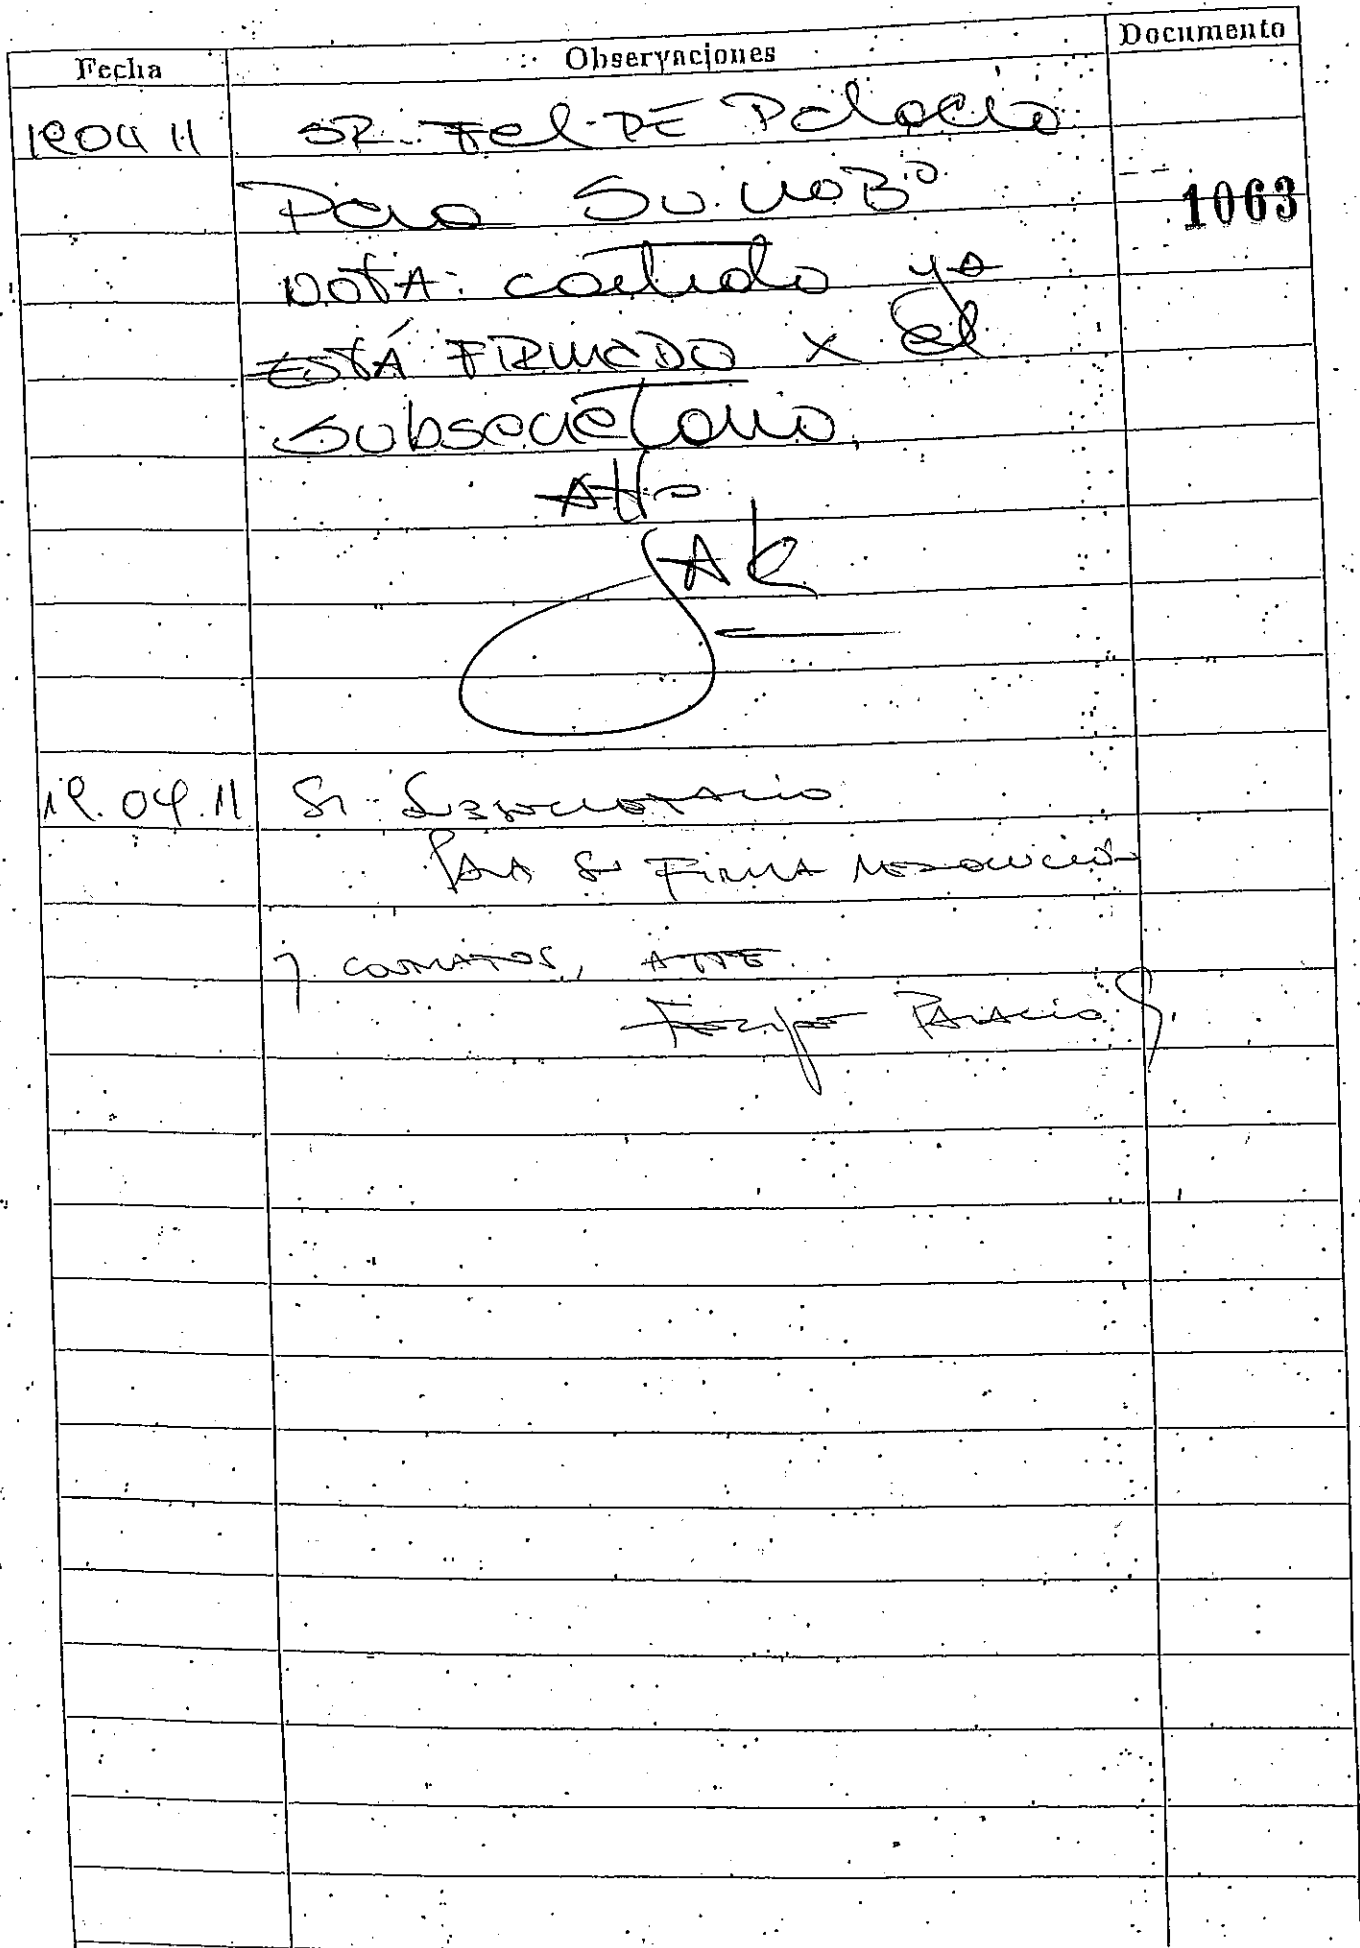 Fecha Observaciones Documento
SR. Felipe Palacio
Para Su VoBº
1063
NOTA: contrato ya
ESTÁ FIRMADO x el
Subsecretario
Atte
19.04.11 Sr. Subsecretario
Para Su Firma resolución
y contratos, ATTE.
Felipe Palacio S.